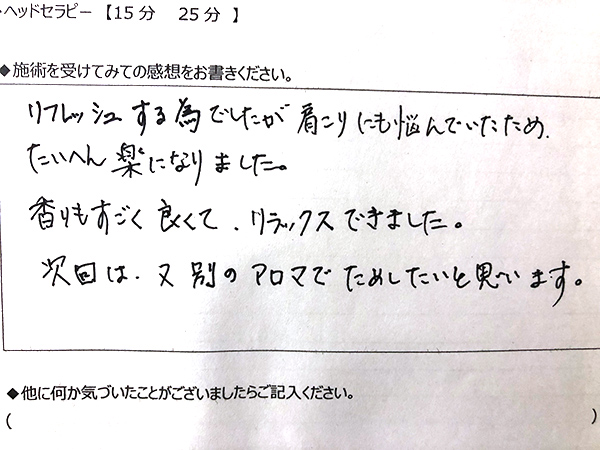 ・ヘッドセラピー 【15分　25分 】
◆施術を受けてみての感想をお書きください。
リフレッシュする為でしたが 肩こりにも悩んでいたため、
たいへん楽になりました。
香りもすごく良くて、リラックスできました。
次回は、又別のアロマでためしたいと思います。
◆他に何か気づいたことがございましたらご記入ください。
(　　)